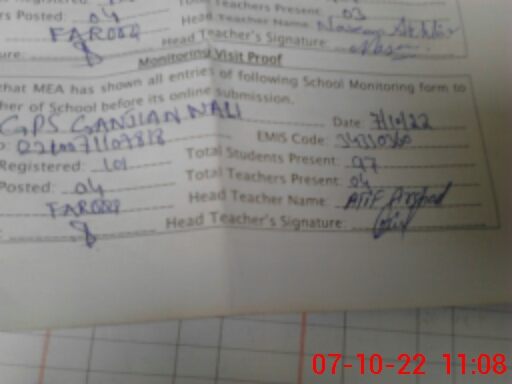 Posted: 04 Teachers Present: 03
FAROOQ Head Teacher Name:
ure: Head Teacher's Signature:
Monitoring Visit Proof
that MEA has shown all entries of following School Monitoring form to
her of School before its online submission.
GPS GANJIAN WALI Date: 7/10/22
EMIS Code: 34310360
Registered: 101 Total Students Present: 97
Posted: 04 Total Teachers Present: 04
FAROOQ Head Teacher Name: Atif Arshad
Head Teacher's Signature:
07-10-22 11:08